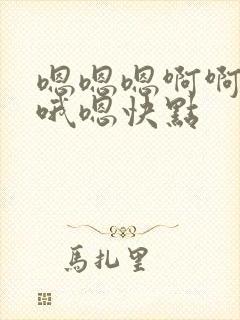 嗯嗯嗯啊啊
哦嗯快點
馬扎里